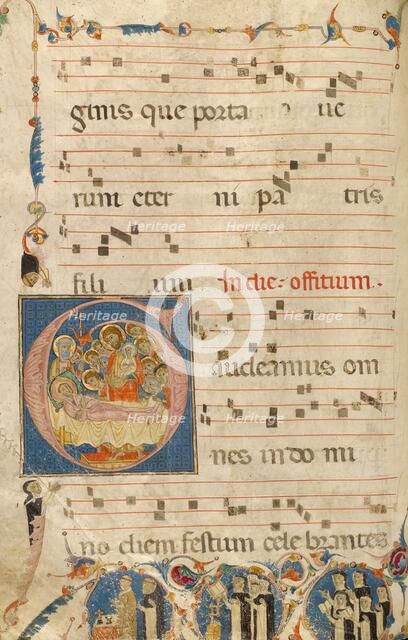 ginis que porta ue
rum eter ni pa tris
Heritage Heritage
fili um In die. offitium.
Heritage Heritage
G audeamus om
Heritage Heritage
nes in do mi
no diem festum cele brantes